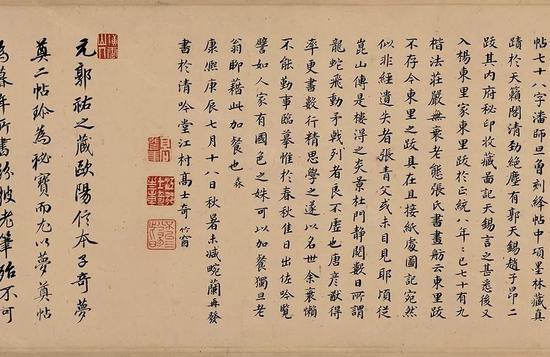 帖七十八字潘師旦刻絳帖中項墨林藏真
蹟於天籟閣清勁絶塵有郭天錫趙子昂二
跋其內府秘印收藏啚記天錫言之甚悉後又
入楊東里家東里跋於正統八年已七十有九
楷法莊嚴無衰老態張氏書畫舫云東里跋
不存今東里之跋具在且接紙處圖記宛然
似非經遺失者張青父或未目見耶頃從
崑山傳是樓得之炎景杜門靜閱數日所謂
龍蛇飛動矛戟列者良不虛也唐彥猷得
率更書數行精思學之遂以名世余衰懶
不能勤事臨摹惟於春秋佳日出佐吟覽
譬如人家有國色之姝可以加餐獨旦老
翁聊藉此加餐也
康熙庚辰七月十八日秋暑未減畹蘭再發
書於清吟堂江村高士奇 竹窗
元郭祐之藏歐陽信本子奇夢
奠二帖珍為秘寶而尤以夢奠帖
為暮年所書紛披老筆殆不可